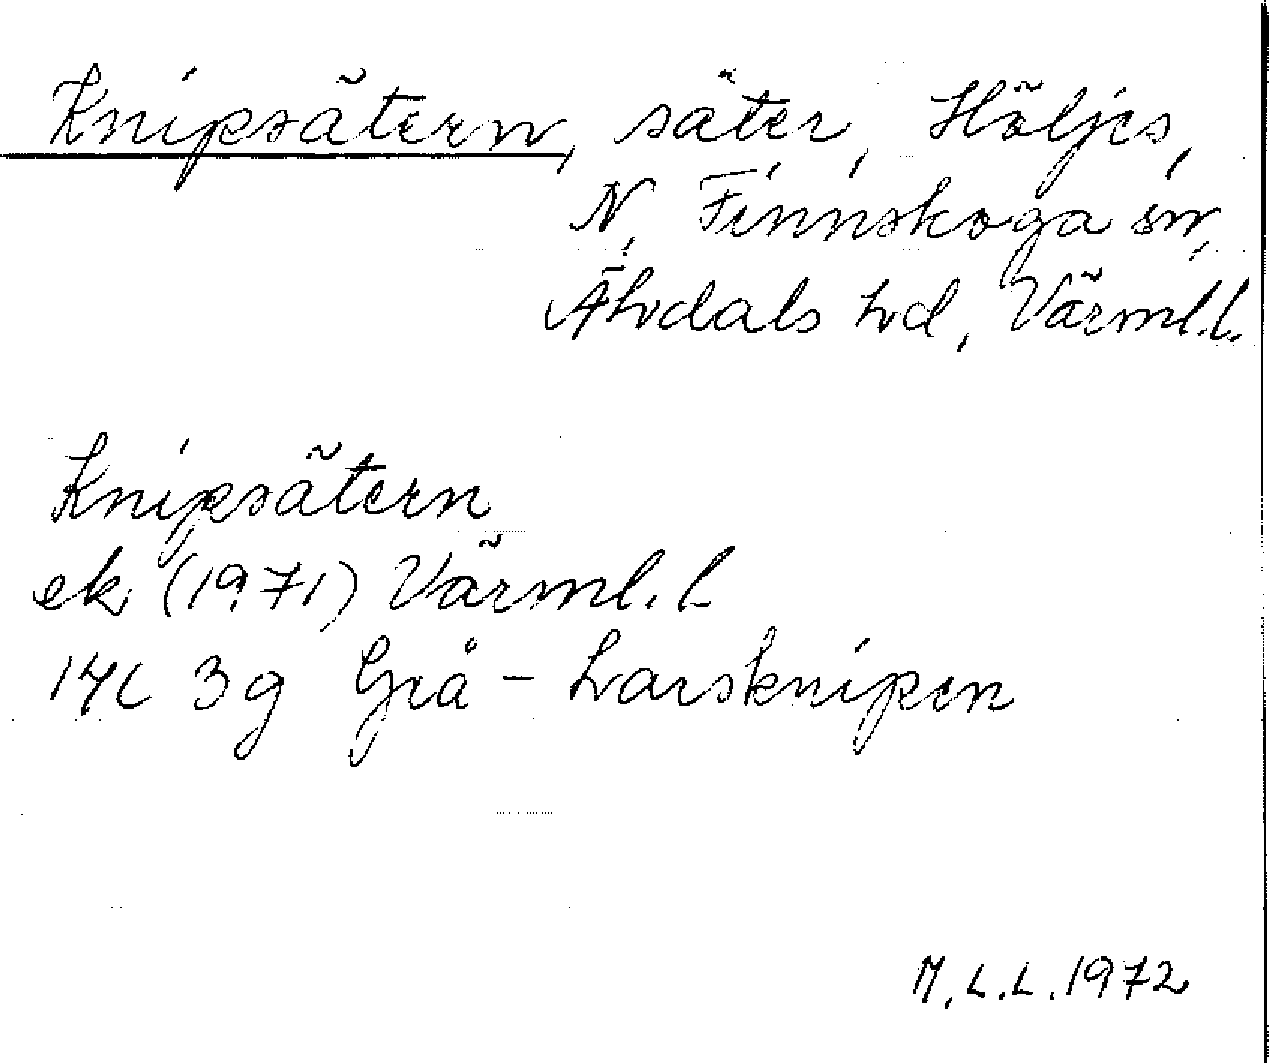 Knipsätern, säter, Höljes,
N. Finnskoga sn,
Älvdals hd, Värml.l.
Knipsätern
ek (1971) Värml.l
14C 3g Grå-Larsknipen
M.L.L.1972